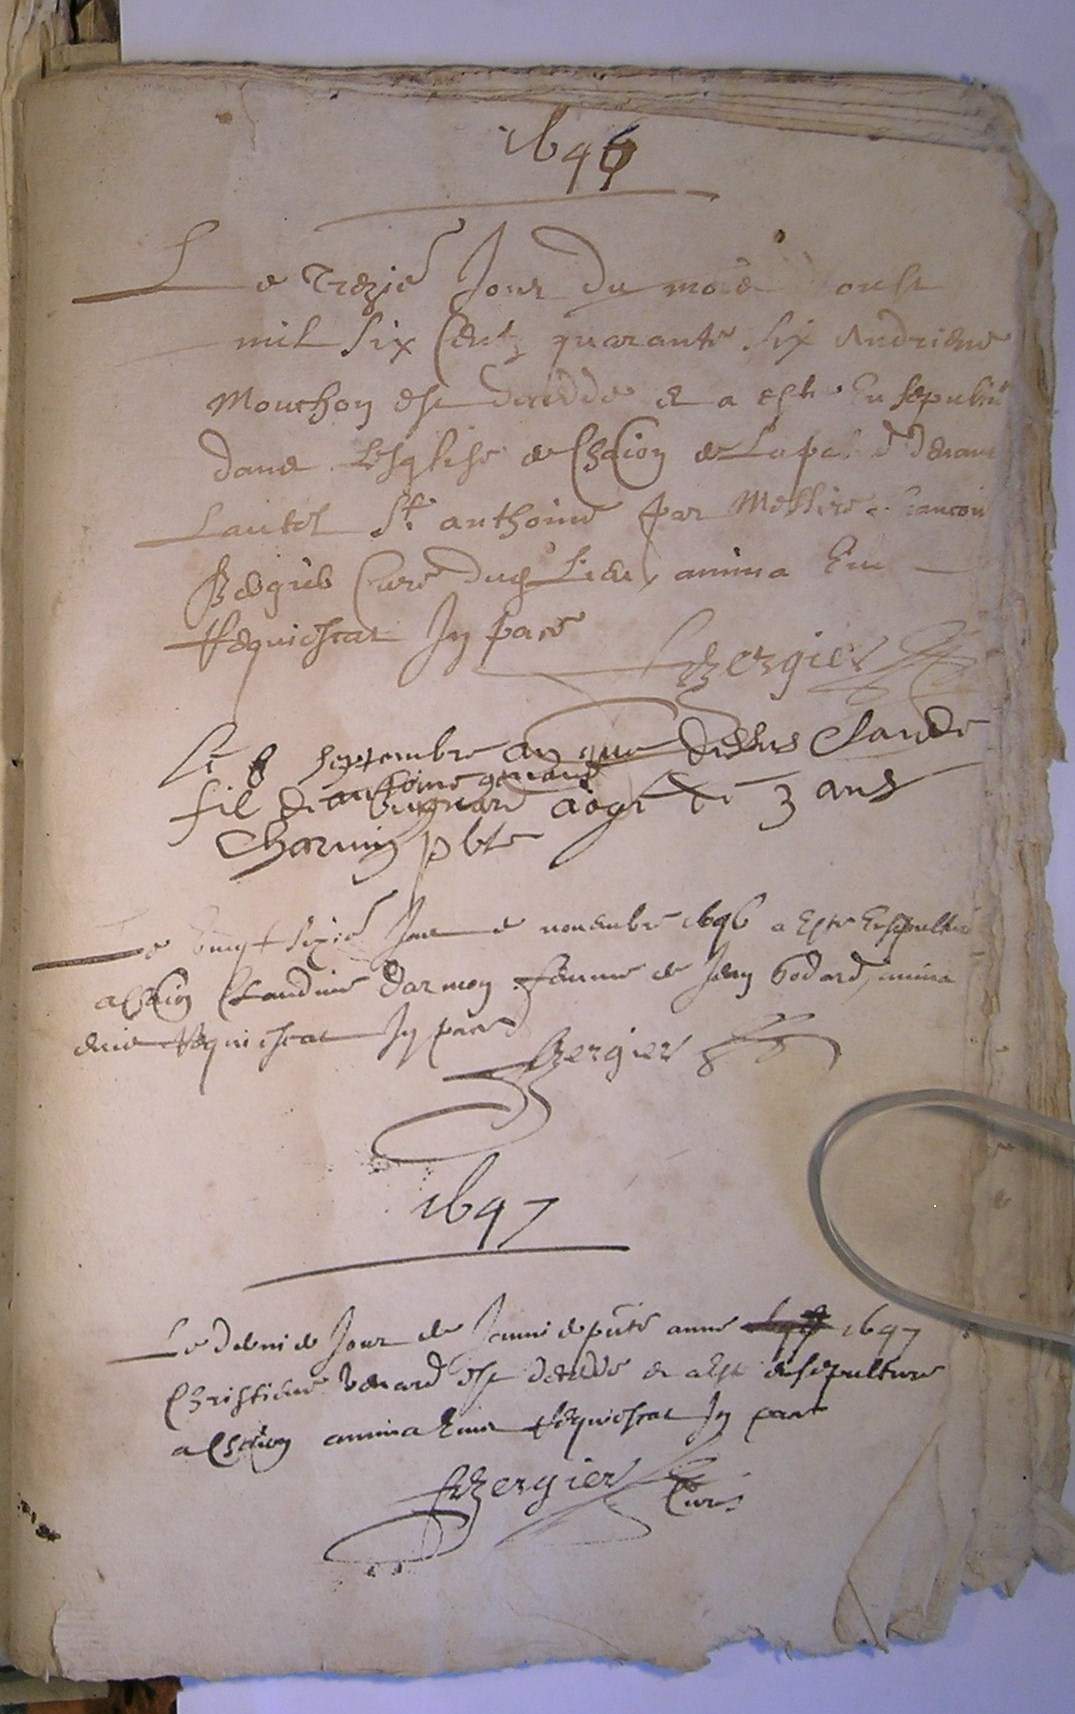 1646
Le Trezie Jour du mois oust
mil six Centz quarante six Andriene
Mouchon est decedde et a este Ensepulture
dans Lesglise de de Lapal devant
Lautel St anthoine par Messire francois
Bergier Curé dud Lieu, anima Eius
Requiescat In pace
Bergier
Le 8 septembre an que dessus Claude
fil de anthoine
aagé de 3 ans
Charmin pbte
Le vingt sixie Jour de novembre 1646 a Este Ensepulture
a Claudine Darmon femme de Jean bodard, anima
eius Requiescat In pace
Bergier
1647
Le dernie Jour de Janvie de pnte anne 1647
Christiene benard est decedde et a Este ensepulture
a anima Eius Requiescat In pace
Bergier
Curé